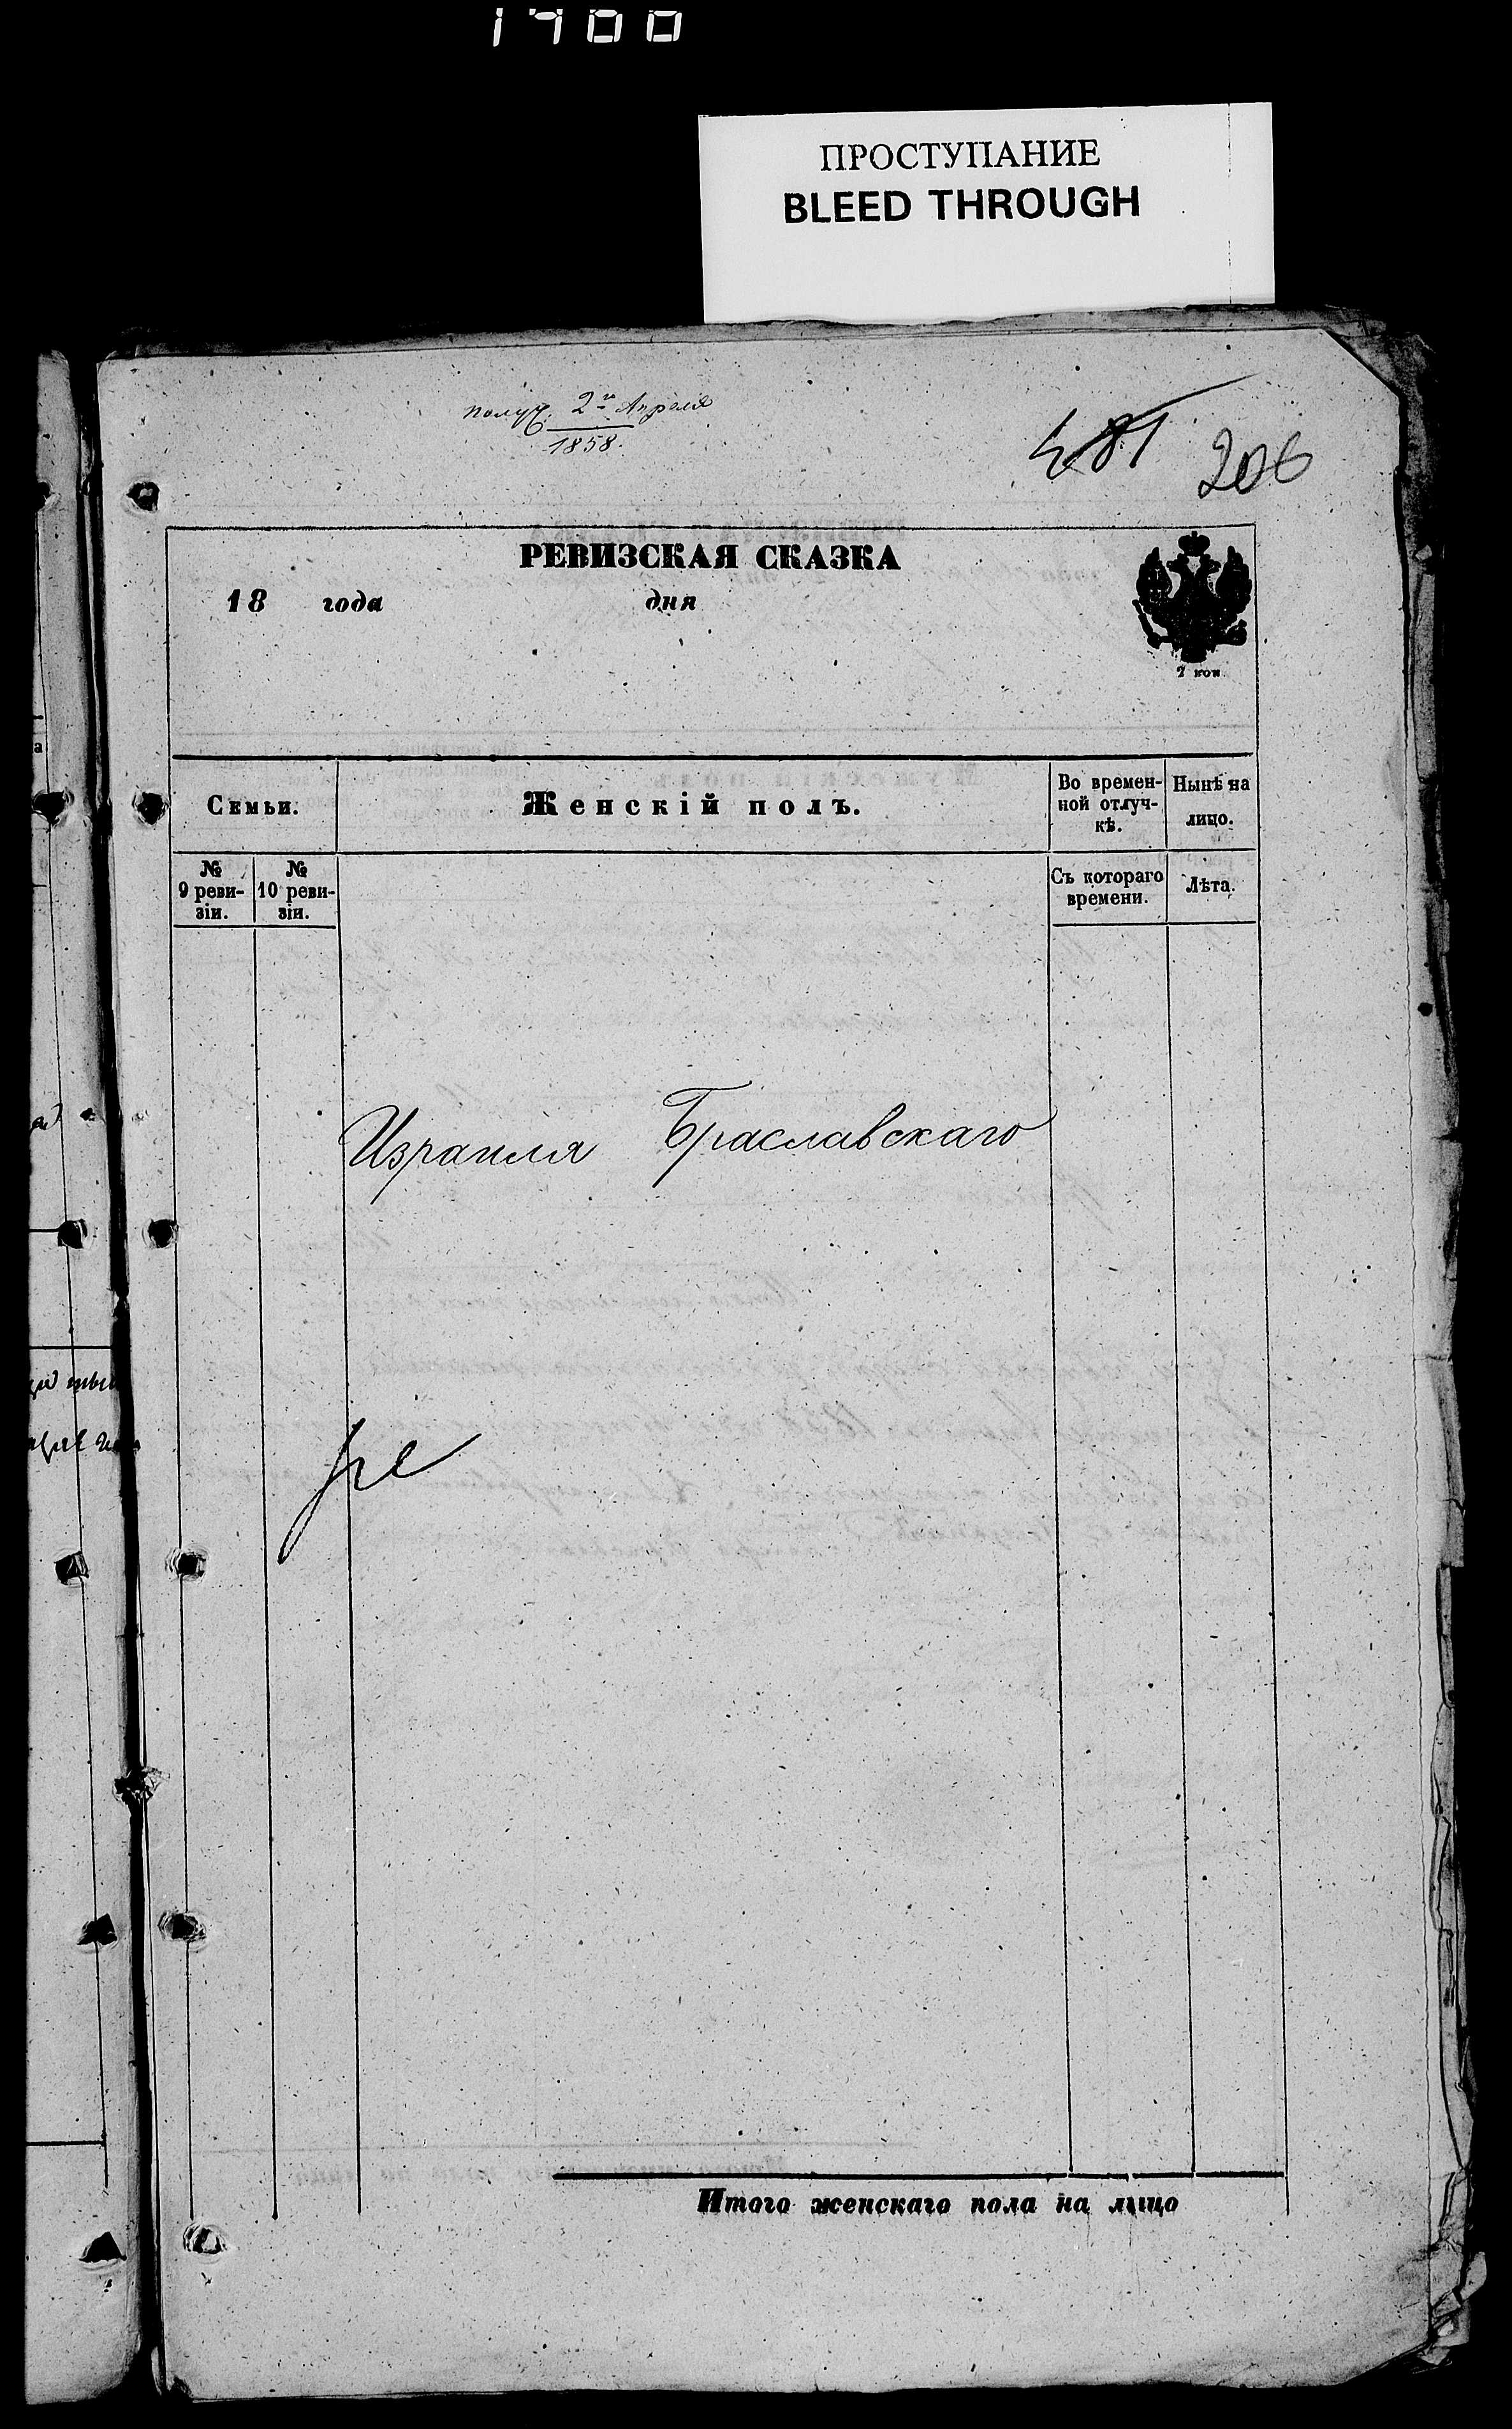 1900
ПРОСТУПАНИЕ
BLEED THROUGH
получ. 2го Апреля
1858.
481
206
РЕВИЗСКАЯ СКАЗКА
18 года дня
2 коп.
Семьи.
Женскій полъ.
Во времен-
ной отлуч-
кѣ.
Нынѣ на
лицо.
№
9 реви-
зіи.
№
10 реви-
зіи.
Съ котораго
времени.
Лѣта.
Израиля Браславскаго
Итого женскаго пола на лицо